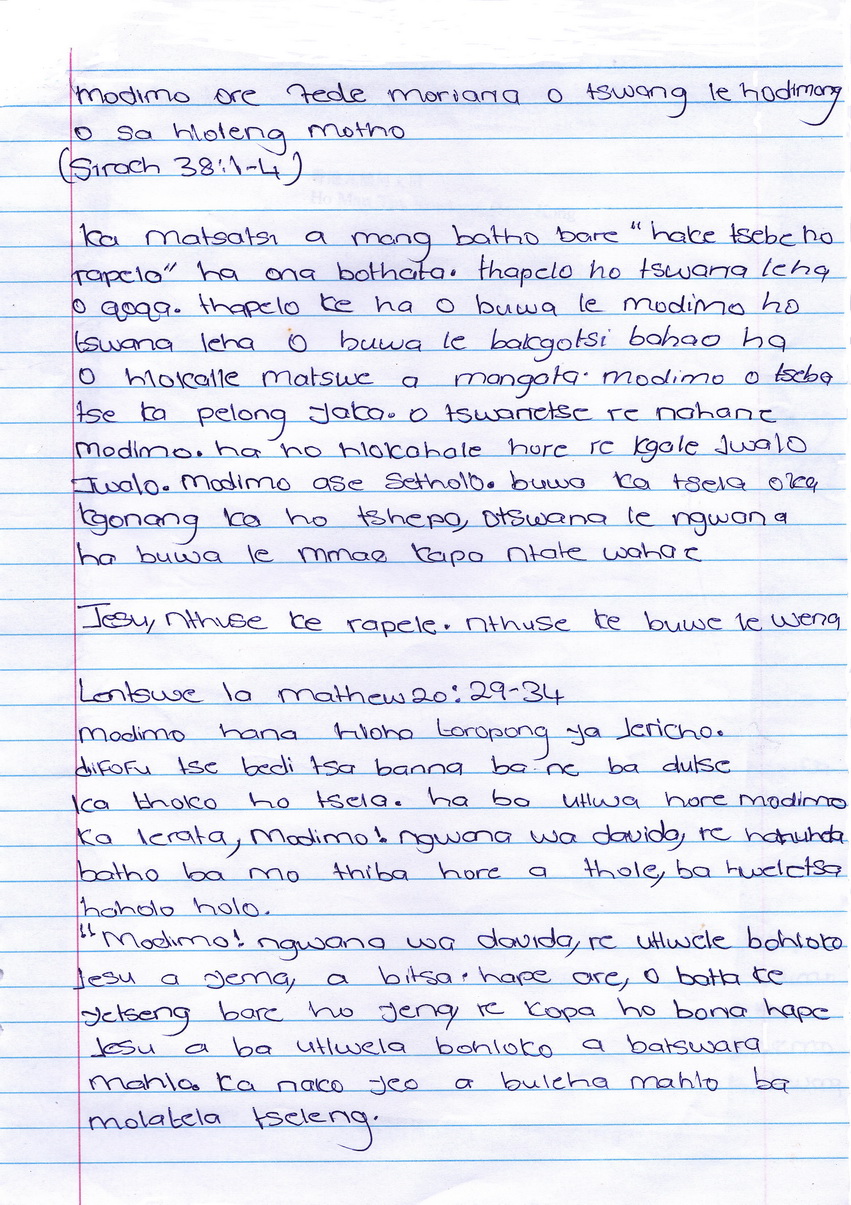 modimo ore fede moriana o tswang le hodimong
o sa hloleng motho
(Sirach 38:1-4)
ka matsatsi a mang batho bare "hake tsebe ho
rapelo" ha ona bothata. thapelo ho tswana leha
o qoqa. thapelo ke ha o buwa le modimo ho
tswana leha o buwa le bakgotsi bahao ha
o hlokalle matswe a mangata. modimo o tseba
tse ka pelong yaka. o tswanetse re nahane
modimo. ha ho hlokahale hore re kgale Jwalo
Jwalo. modimo ase Setholo. buwa ka tsela oka
kgonang ka ho tshepa, otswana le ngwana
ha buwa le mmae kapa ntate wahae
Jesu, nthuse ke rapele. nthuse ke buwe le wena
Lentswe la mathew 20:29-34
modimo hana hloho toropong ya Jericho.
difofu tse bedi tsa banna ba ne ba dutse
ka thoko ho tsela. ha ba utlwa hore modimo
ka lerata, modimo! ngwana wa davida, re
batho ba mo thiba hore a thole, ba hweletsa
haholo holo.
"Modimo! ngwana wa davida, re utlwele bohloko
Jesu a yema, a bitsa. hape are, o batla ke
yetseng bare ho yena, re kopa ho bona hape
Jesu a ba utlwela bohloko a batswara
mahlo. ka nako yeo a buleha mahlo ba
molatela tseleng.